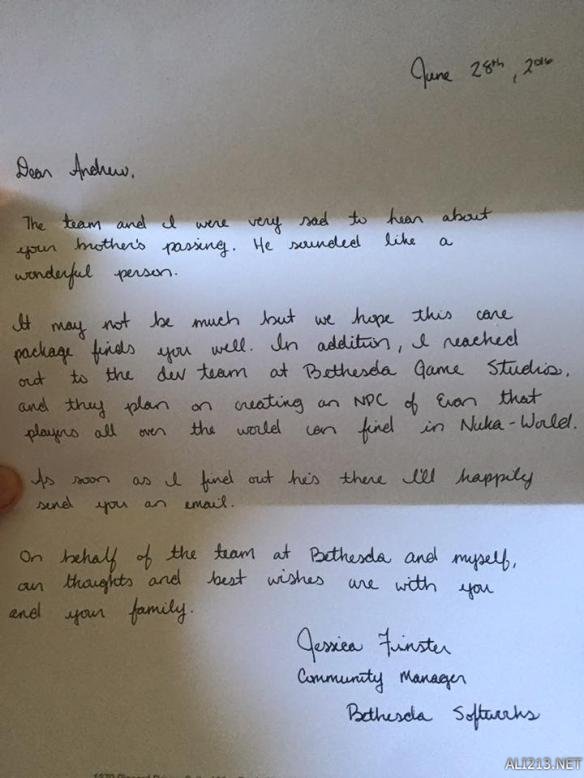 June 28th, 2016
Dear Andrew,
The team and I were very sad to hear about
your brother's passing. He sounded like a
wonderful person.
It may not be much but we hope this care
package finds you well. In addition, I reached
out to the dev team at Bethesda Game Studios,
and they plan on creating an NPC of Evan that
players all over the world can find in Nuka-World.
As soon as I find out he's there I'll happily
send you an email.
On behalf of the team at Bethesda and myself,
our thoughts and best wishes are with you
and your family.
Jessica Finster
Community Manager
Bethesda Softworks
ALI213.NET